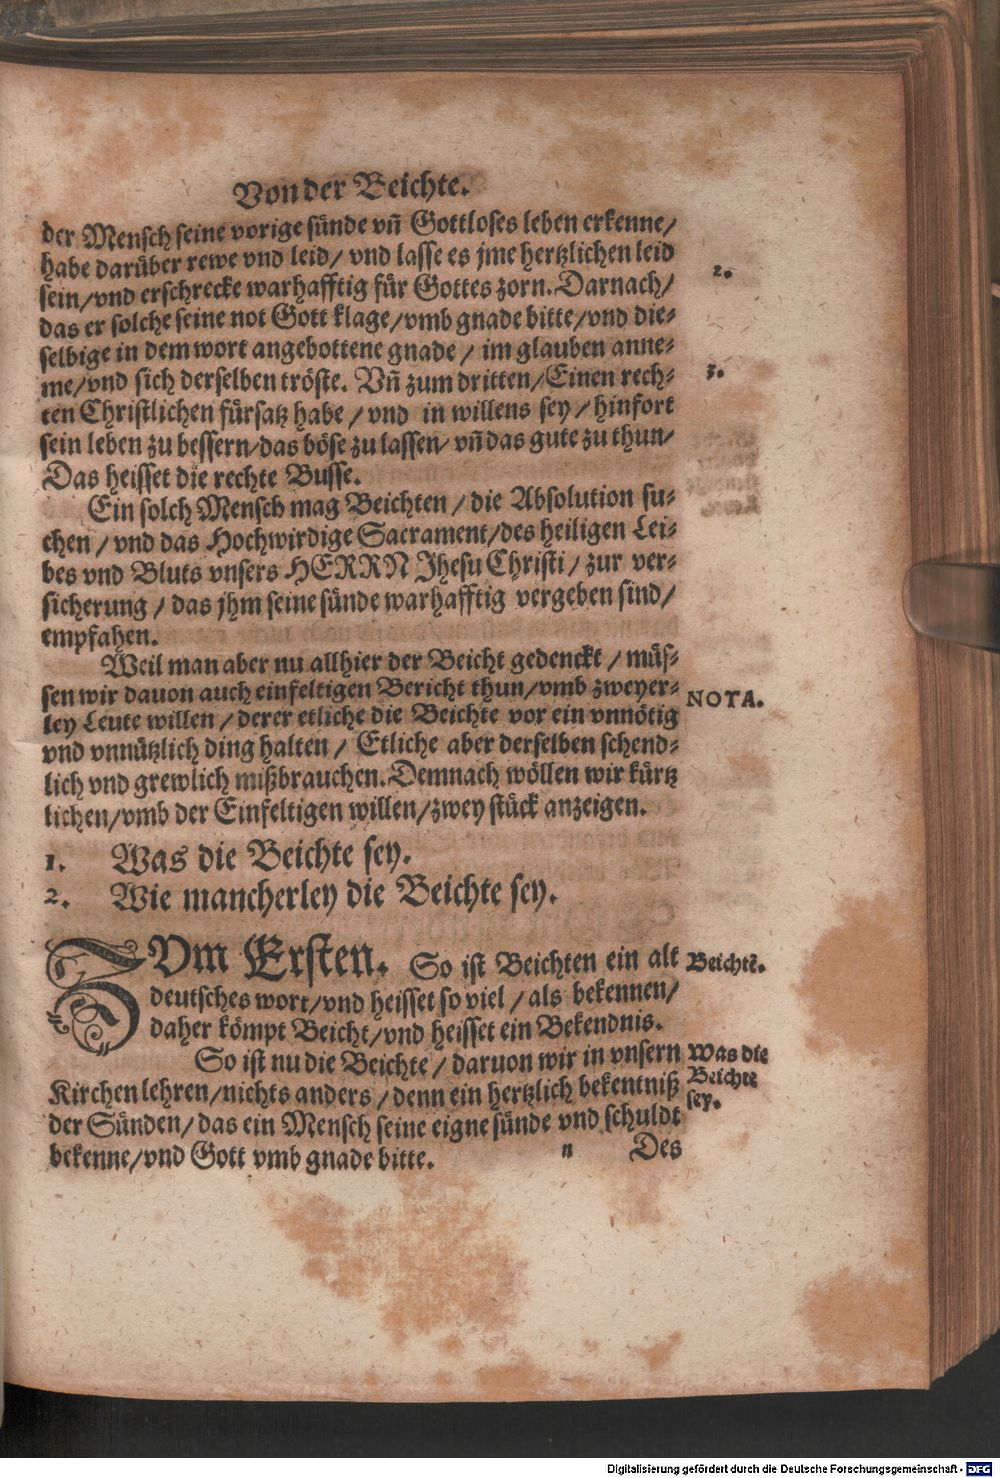 Von der Beichte.
der Mensch seine vorige sünde vn̄ Gottloses leben erkenne/
habe darüber rewe vnd leid/ vnd lasse es jme hertzlichen leid
sein/vnd erschrecke warhafftig für Gottes zorn. Darnach/
2.
das er solche seine not Gott klage/vmb gnade bitte/vnd die-
selbige in dem wort angebottene gnade / im glauben anne-
me/vnd sich derselben tröste. Vn̄ zum dritten/Einen rech-
3.
ten Christlichen fürsatz habe / vnd in willens sey / hinfort
sein leben zu bessern/das böse zu lassen/ vn̄ das gute zu thun/
Das heisset die rechte Busse.
Ein solch Mensch mag Beichten / die Absolution su-
chen / vnd das Hochwirdige Sacrament/des heiligen Lei-
bes vnd Bluts vnsers HERRN Jhesu Christi / zur ver-
sicherung / das jhm seine sünde warhafftig vergeben sind/
empfahen.
Weil man aber nu allhier der Beicht gedenckt / müs-
sen wir dauon auch einfeltigen Bericht thun/vmb zweyer-
NOTA.
ley Leute willen / derer etliche die Beichte vor ein vnnötig
vnd vnnützlich ding halten / Etliche aber derselben schend-
lich vnd grewlich mißbrauchen. Demnach wöllen wir kürtz
lichen/vmb der Einfeltigen willen/zwey stück anzeigen.
1. Was die Beichte sey.
2. Wie mancherley die Beichte sey.
ZVm Ersten. So ist Beichten ein alt
Beichte.
deutsches wort/vnd heisset so viel / als bekennen/
daher kömpt Beicht/vnd heisset ein Bekendnis.
So ist nu die Beichte / daruon wir in vnsern
Was die
Beichte
sey.
Kirchen lehren/nichts anders / denn ein hertzlich bekentniß
der Sünden/das ein Mensch seine eigne sünde vnd schuldt
bekenne/vnd Gott vmb gnade bitte.
n Des
Digitalisierung gefördert durch die Deutsche Forschungsgemeinschaft - DFG